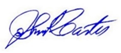 John Carter